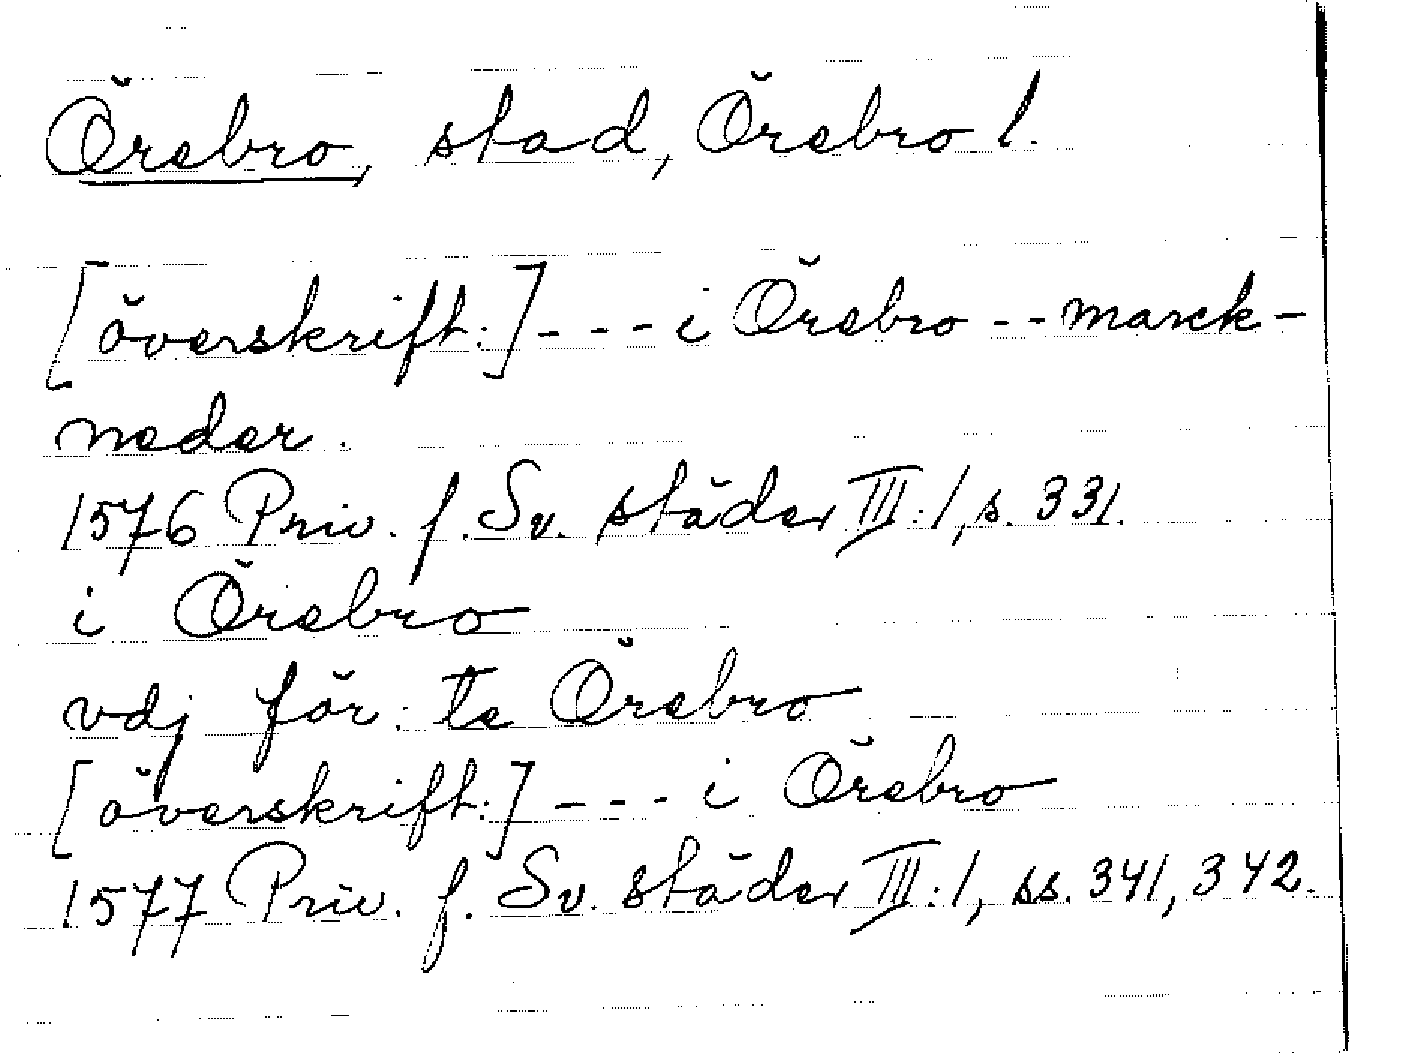 Örebro, stad, Örebro l.
[överskrift:] - - - i Örebro - - marck-
neder.
1576 Priv. f. Sv. städer III:1, s. 331.
i Örebro
vdj för: te Örebro
[överskrift:] - - - i Örebro
1577 Priv. f. Sv. städer III:1, ss. 341, 342.